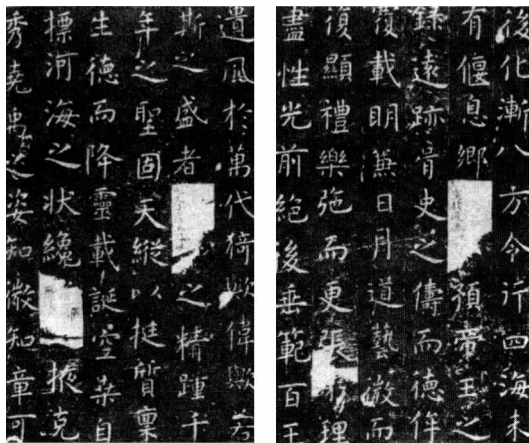 後化漸八方令行四海未
有偃息鄉預帝王之
錄遠跡胥史之儔而德侔
覆載明兼日月道藝微而
復顯禮樂弛而更張窮理
盡性光前絕後垂範百王
遺風於萬代猗歟偉歟若
斯之盛者之精踵千
年之聖固天縱以挺質稟
生德而降靈載誕空桑自
標河海之狀纔掖克
秀堯禹之姿知微知章可